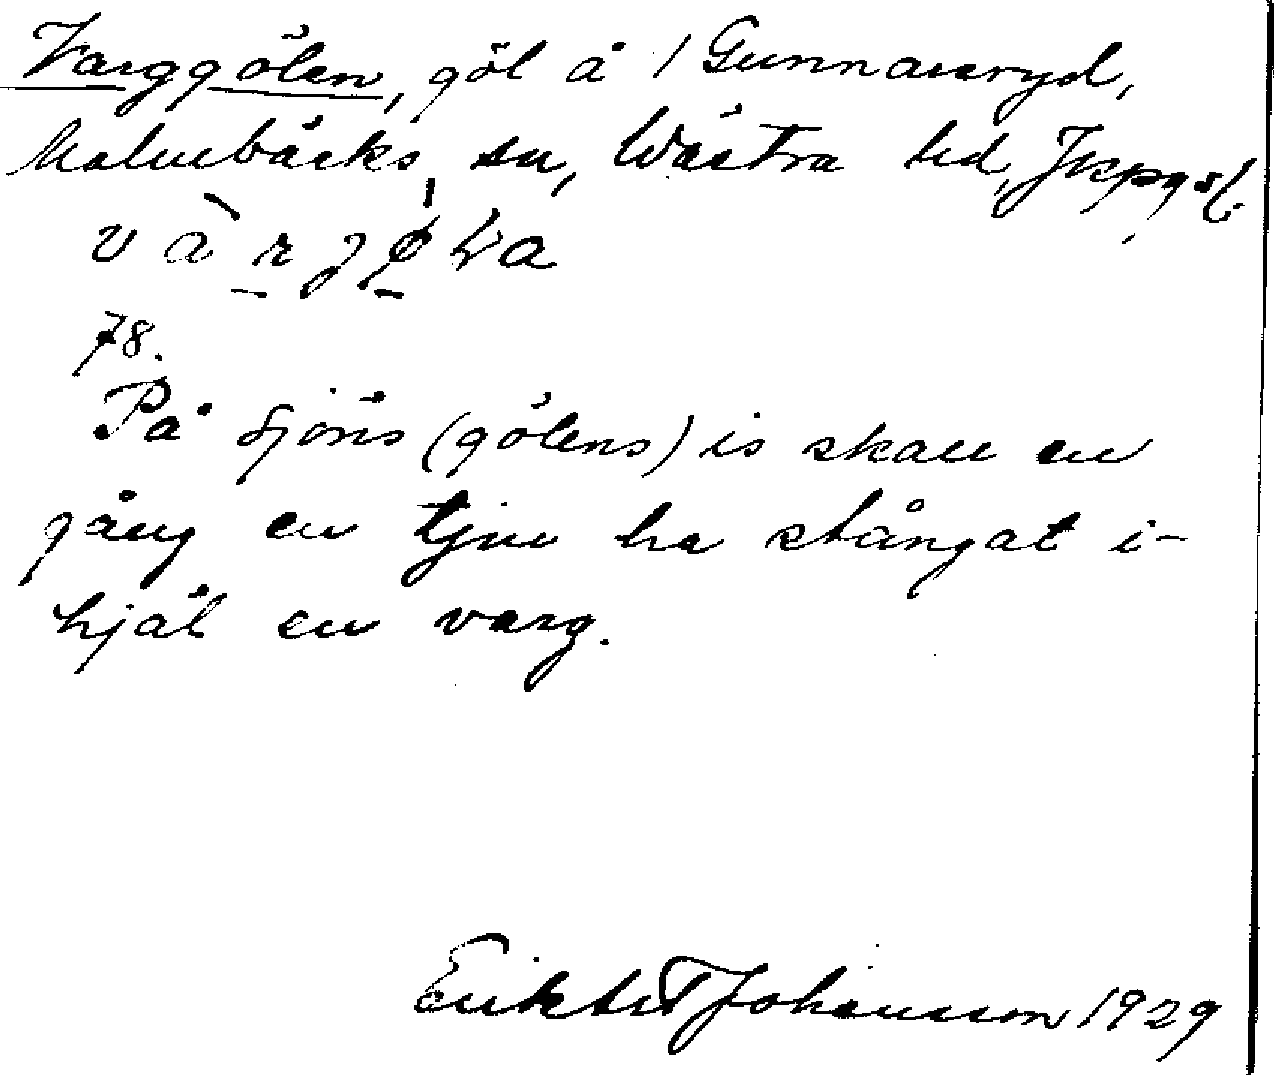 Varggölen, göl å / Gunnarsryd,
Malmbäcks sn, Västra hd, Jkpgs l.
v à r g ø̀ L a
78.
På sjöns (gölens) is skall en
gång en tjur ha stångat i-
hjäl en varg.
Johansson 1929